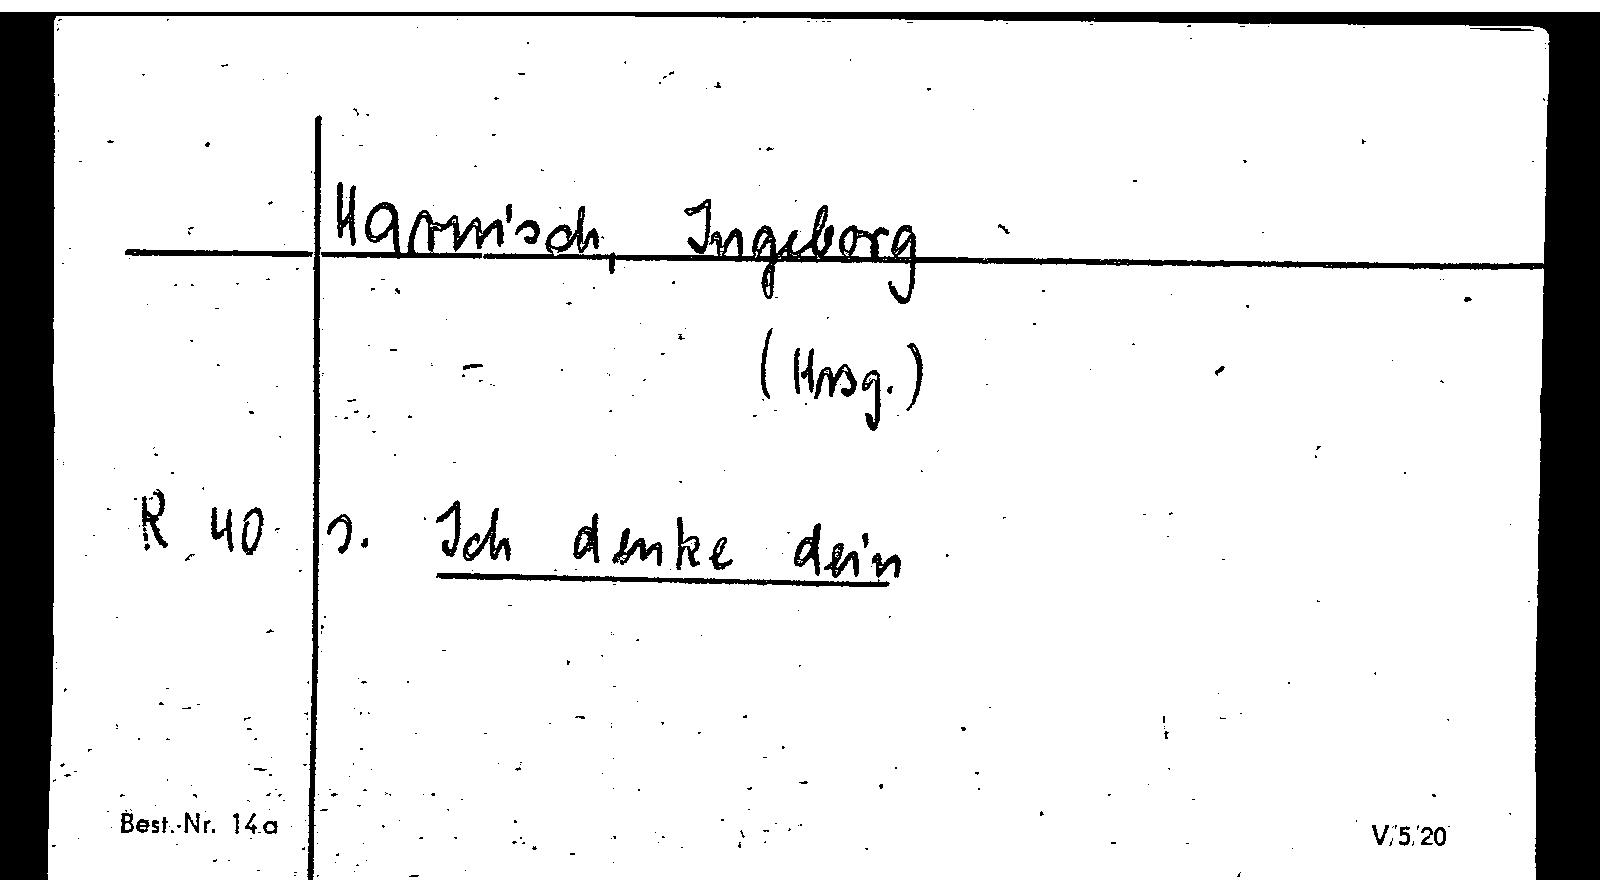 Harnisch, Ingeborg
(Hrsg.)
R 40 s. Ich denke dein
Best.-Nr. 14a
V/5/20